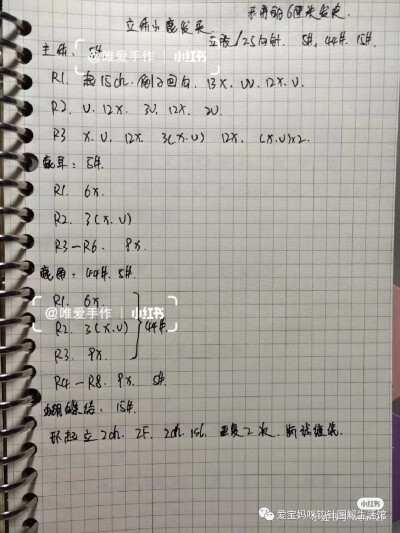 立体小鹿发夹
主体：5#
@唯爱手作 | 小红书
立夏/2.5勾针. 5#, 44#, 15#.
R1. 起15ch. 倒2回勾. 13X. W. 12X. V.
R2. V. 12X. 3V. 12X. 2V.
R3 X. V. 12X. 3(X.V) 12X. (X.V)×2.
鹿耳：5#.
R1. 6X.
R2. 3(X.V)
R3—R6. 9X.
鹿角：44#. 5#.
R1. 6X.
@唯爱手作 | 小红书
R2. 3(X.V) 44#.
R3. 9X.
R4—R8. 9X. 5#
蝴蝶结：15#.
环起立2ch. 2F. 2ch. 1sl. 重复2次. 断线继线.
小红书
爱宝妈咪钩针图解生活馆